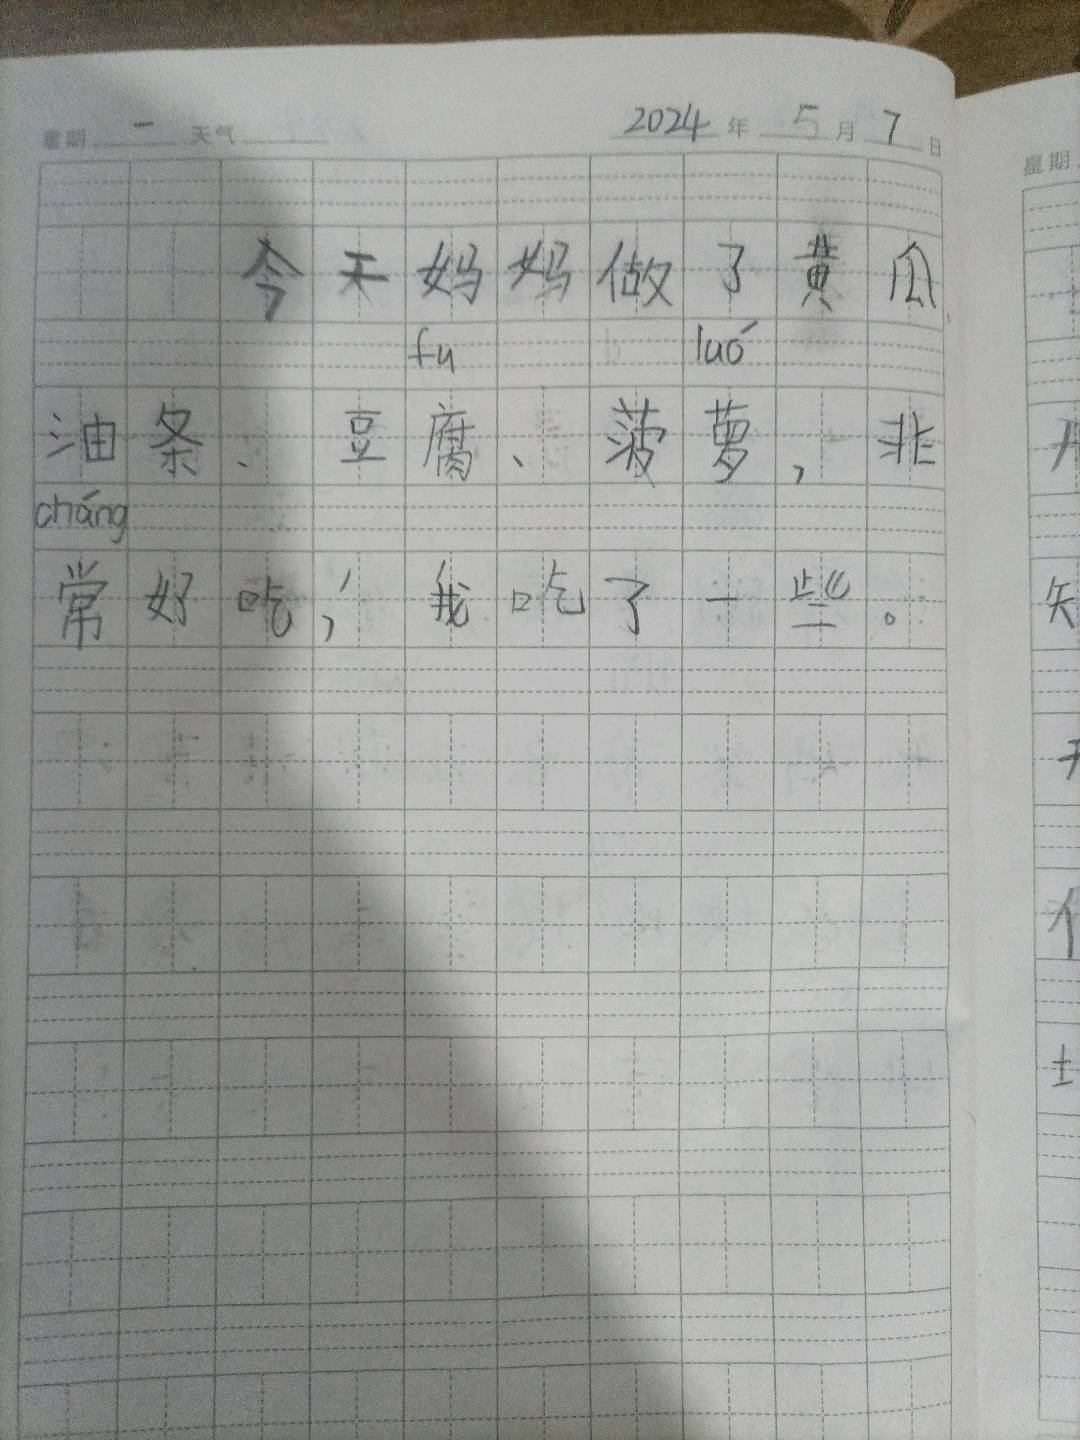 星期 一 天气 2024 年 5 月 7 日
今天妈妈做了黄瓜
fu luó
油条、豆腐、菠萝,非
cháng
常好吃,我吃了一些。
星期